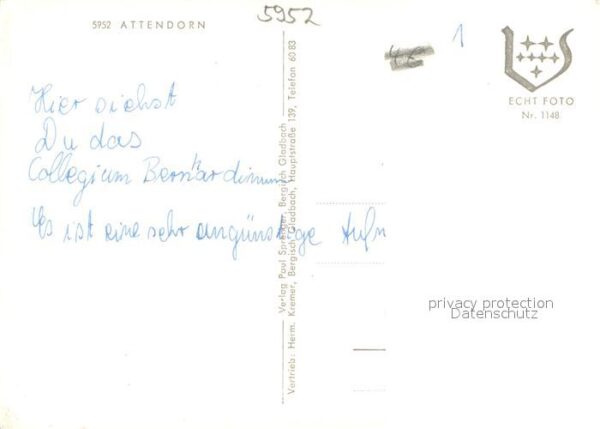 5952
5952 ATTENDORN
1
ECHT FOTO
Nr. 1148
Hier siehst
Du das
Collegium Bernardinum
Es ist eine sehr ungünstige Aufn
Verlag Paul Sprenger, Bergisch Gladbach
Vertrieb: Herm. Kremer, Bergisch Gladbach, Hauptstraße 139, Telefon 60 83
privacy protection
Datenschutz